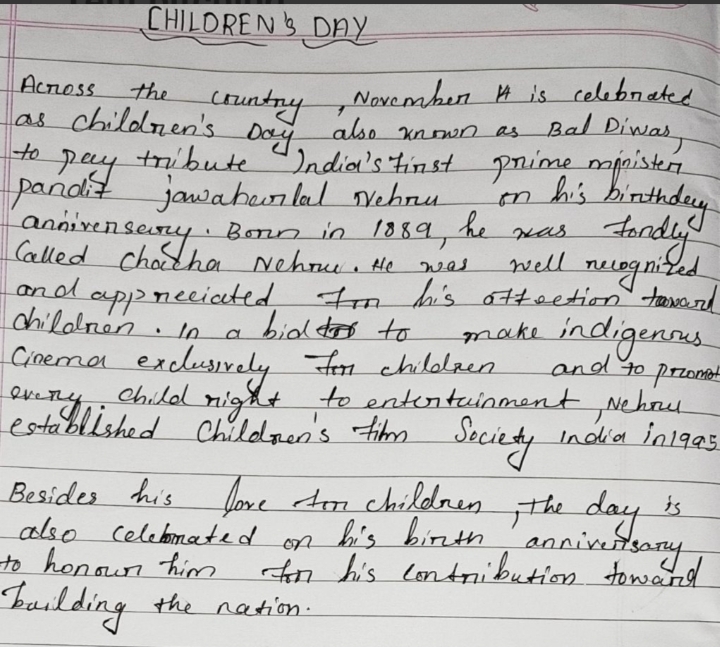 CHILDREN's DAY
Across the country, November 14 is celebrated
as children's Day also known as Bal Diwas,
to pay tribute India's first prime minister
pandit jawaharlal Nehru on his birthday
anniversary. Born in 1889, he was fondly
Called chaccha Nehru. He was well recognized
and appreciated for his affection toward
children. In a bid to make indigenous
Cinema exclusively for children and to promot
every child right to entertainment, Nehru
established Children's film Society india in 1995
Besides his love for children, the day is
also celebrated on his birth anniversary
to honour him for his contribution toward
building the nation.